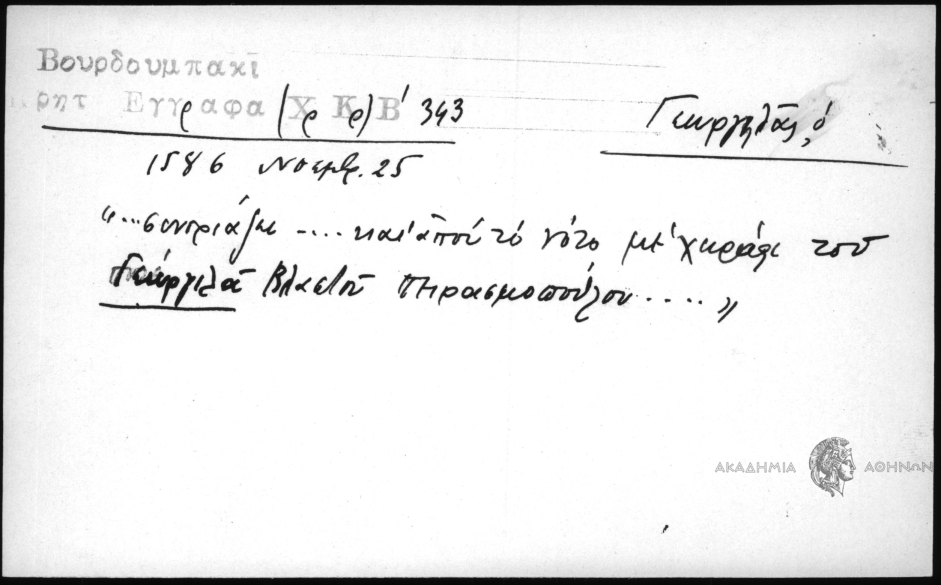 Βουρδουμπακι
ρητ Εγγραφα Χ Κ Β
ρ (ρ ρ)' 343
Γεωργιλᾶς, ὁ
1586 Νοεμβρ. 25
"...συνοριάζει .... καί ἀπού τό νότο μέ χωράφι τοῦ
Γεώργιλᾶ Βλαστοῦ Πειρασμοπούλου .... "
ΑΚΑΔΗΜΙΑ ΑΘΗΝΩΝ